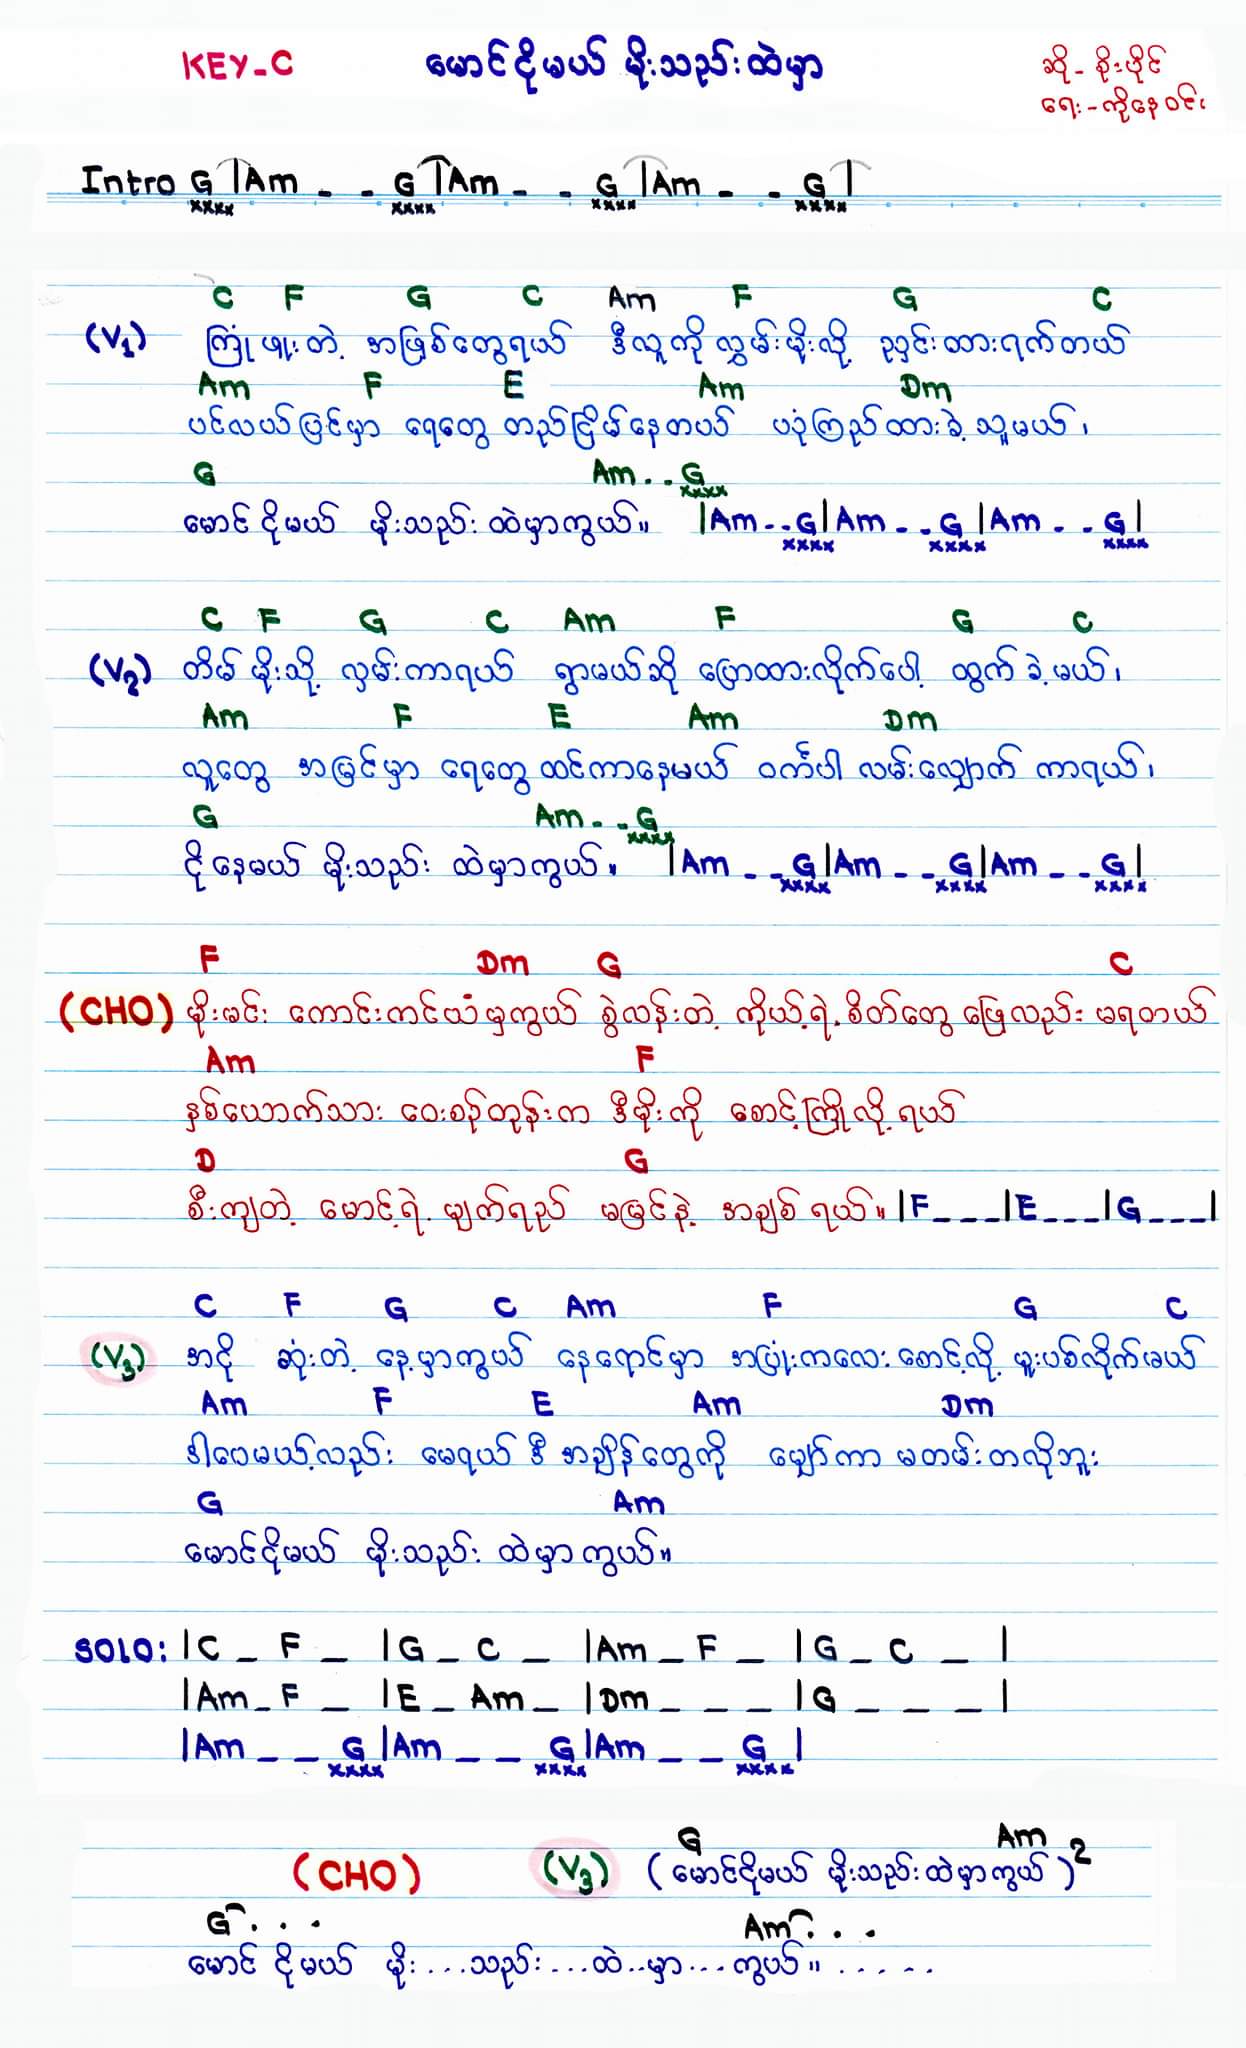 KEY-C မောင်ငိုမယ် မိုးသည်းထဲမှာ ဆို - စိုးပိုင်
ရေး - ကိုနေဝင်း
Intro G | Am - - G | Am - - G | Am - - G |
xxxx xxxx xxxx xxxx
C F G C Am F G C
(V1) ကြုံဖူးတဲ့ အဖြစ်တွေရယ် ဒီလူကို လွှမ်းမိုးလို့ ညှင်းထားရက်တယ်
Am F E Am Dm
ပင်လယ်ပြင်မှာ ရေတွေ တည်ငြိမ်နေတယ် ပုံကြည်ထားခဲ့သူမယ်၊
G Am . . G
xxxx
မောင်ငိုမယ် မိုးသည်းထဲမှာကွယ်။ | Am - - G | Am - - G | Am - - G |
xxxx xxxx xxxx
C F G C Am F G C
(V2) တိမ်မိုးသို့ လှမ်းကာရယ် ရွာမယ်ဆို ပြောထားလိုက်ပေါ့ ထွက်ခဲ့မယ်၊
Am F E Am Dm
လူတွေ အမြင်မှာ ရေတွေ ထင်ကာနေမယ် ဝင်္ကပါ လမ်းလျှောက် ကာရယ်၊
G Am - - G
xxxx
ငိုနေမယ် မိုးသည်း ထဲမှာကွယ်။ | Am - - G | Am - - G | Am - - G |
xxxx xxxx xxxx
F Dm G C
(CHO) မိုးမင်း ကောင်းကင်ယံမှကွယ် စွဲလန်းတဲ့ ကိုယ့်ရဲ့စိတ်တွေ ဖြေလည်း မရတယ်
Am F
နှစ်ယောက်သား ဝေးစဉ်တုန်းက ဒီမိုးကို စောင့်ကြိုလို့ရယ်
D G
စီးကျတဲ့ မောင့်ရဲ့ မျက်ရည် မမြင်နဲ့ အချစ်ရယ်။ | F - - - | E - - - | G - - - |
C F G C Am F G C
(V3) အငို ဆုံးတဲ့ နေ့မှာကွယ် နေရောင်မှာ အပြုံးကလေး စောင့်လို့ မူးပစ်လိုက်မယ်
Am F E Am Dm
ဒါပေမယ့်လည်း မေရယ် ဒီ အချိန်တွေကို မျှော်ကာ မတမ်းတလိုဘူး
G Am
မောင်ငိုမယ် မိုးသည်း ထဲမှာကွယ်။
SOLO: | C - F - | G - C - | Am - F - | G - C - |
| Am - F - | E - Am - | Dm - - - | G - - - |
| Am - - G | Am - - G | Am - - G |
xxxx xxxx xxxx
G Am
(CHO) (V3) (မောင်ငိုမယ် မိုးသည်းထဲမှာကွယ်)2
G . . . Am . . .
မောင် ငိုမယ် မိုး...သည်း...ထဲ..မှာ...ကွယ်။ . . . . .